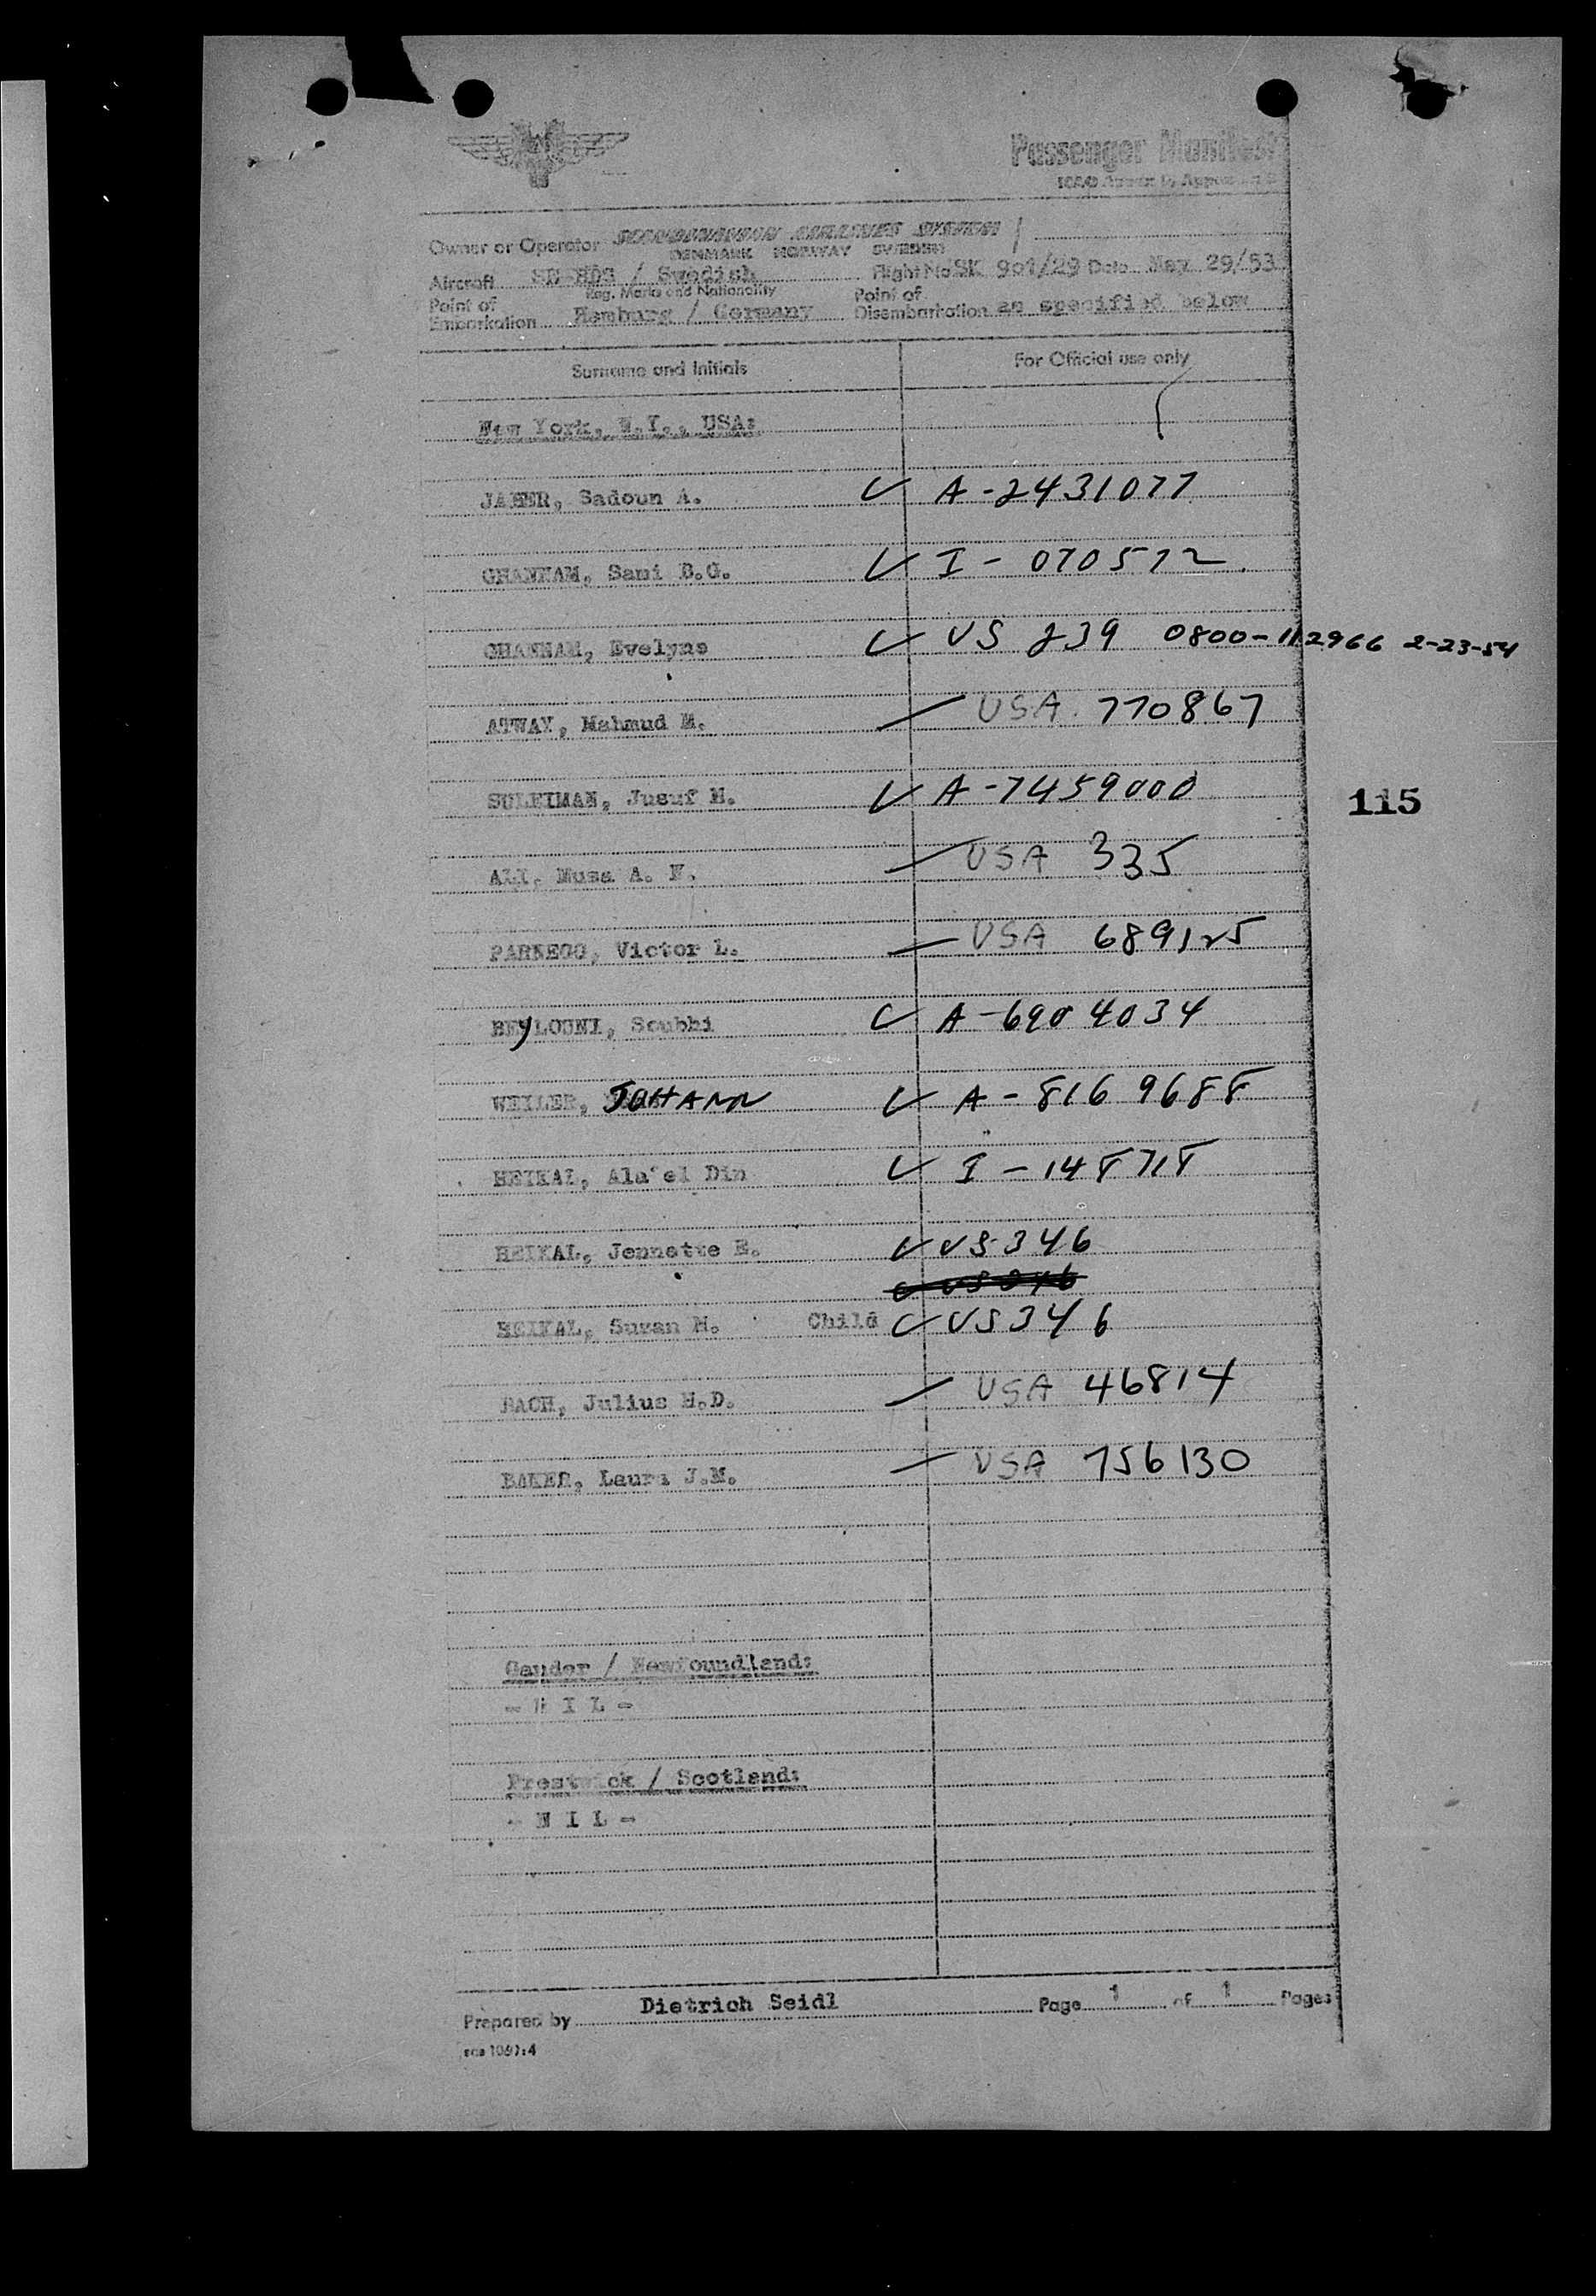 Passenger Manifest
Owner or Operator SCANDINAVIAN AIRLINES SYSTEM
DENMARK NORWAY SWEDEN
Aircraft / Swedish Flight No SK 901/29 Date May 29/53
Reg. Marks and Nationality
Point of Embarkation Hamburg / Germany Point of Disembarkation as specified below
Surname and Initials For Official use only
New York, N.Y., USA:
JABER, Sadoun A. ✓ A-2431077
GHANNAM, Sami B.G. ✓ I - 070572
GHANNAM, Evelyne ✓ VS 239 0800-112966 2-23-54
ATWAY, Mahmud M. USA 770867
SULEIMAN, Jusuf M. ✓ A-7459000
115
ALI, Musa A. USA 335
PARNEGO, Victor L. USA 689125
BEYLOUNI, Soubhi ✓ A-6904034
WEILER, JOHANN ✓ A-8169688
HEIKAL, Ala'el Din ✓ I-148718
HEIKAL, Jennette E. ✓ VS 346
HEIKAL, Susan M. Child ✓ VS 346
BACH, Julius H.D. USA 46814
BAKER, Laura J.M. USA 756130
Gander / Newfoundland:
- N I L -
Prestwick / Scotland:
- N I L -
Prepared by Dietrich Seidl Page 1 of 1 Pages